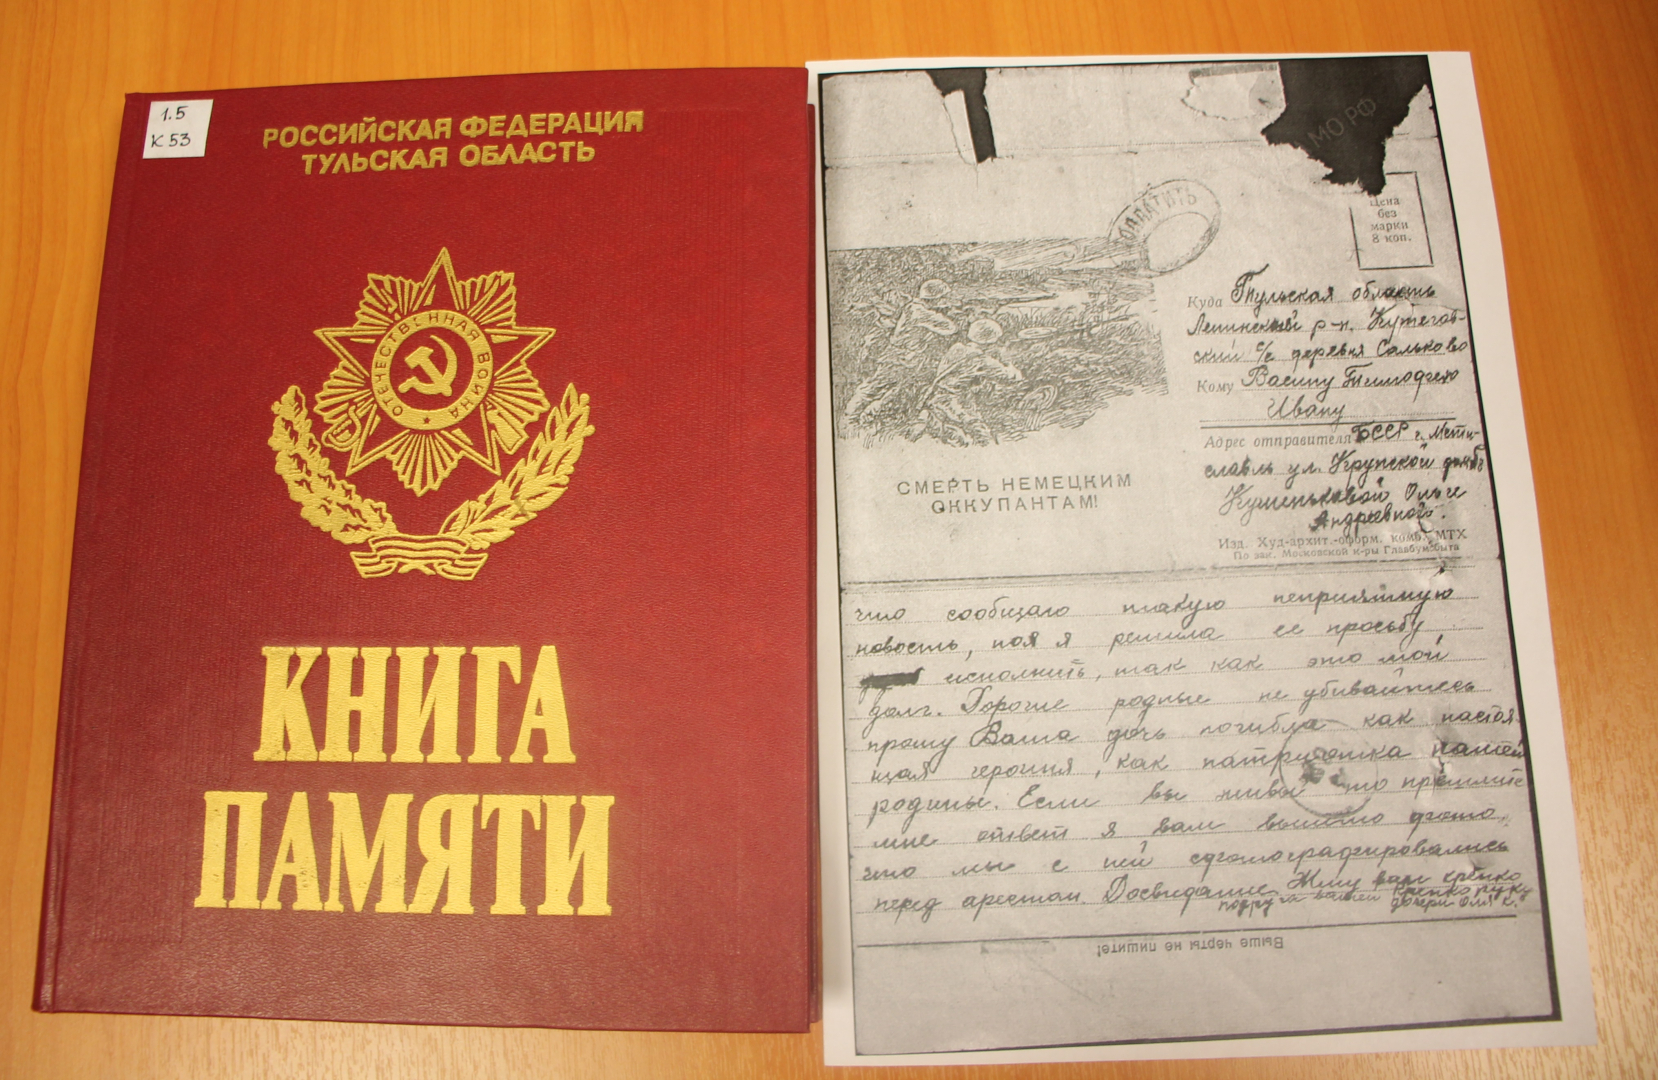 1.5
К 53
РОССИЙСКАЯ ФЕДЕРАЦИЯ
ТУЛЬСКАЯ ОБЛАСТЬ
ОТЕЧЕСТВЕННАЯ ВОЙНА
КНИГА
ПАМЯТИ
МО РФ
ДОПЛАТИТЬ
Цена
без
марки
8 коп.
Куда Тульская область
Ленинский р-н. Кутепов-
ский с/с деревня Сальково
Кому Васину Тимофею
Ивану
Адрес отправителя БССР г. Мсти-
славль ул. Крупской
Ольге
Андреевной.
СМЕРТЬ НЕМЕЦКИМ
ОККУПАНТАМ!
Изд. Худ-архит.-оформ. комб. МТХ
По зак. Московской к-ры Главбумсбыта
что сообщаю такую неприятную
новость, но я решила ее просьбу
исполнить, так как это мой
долг. Дорогие родные не убивайтесь
прошу Ваша дочь погибла как настоя-
щая героиня, как патриотка нашей
родины. Если вы живы то пришлите
мне ответ я вам вышлю фото,
что мы с ней сфотографировались
перед арестом. Досвидание. Жму вам крепко
крепко руку
подруга вашей дочери Оля К.
Выше черты не пишите!